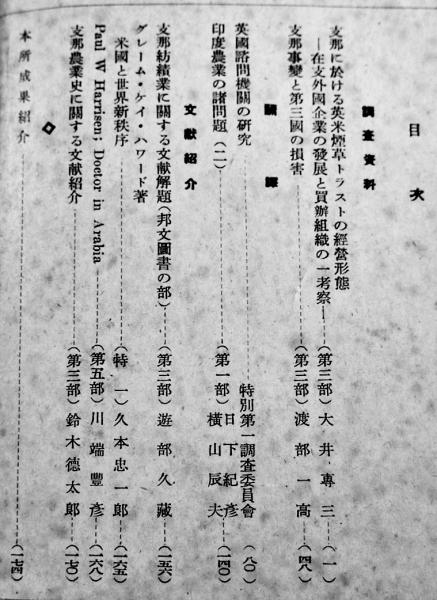 目次
調査資料
支那に於ける英米煙草トラストの經營形態
―在支外國企業の發展と買辦組織の一考察―……(第三部)大井專三(一)
支那事變と第三國の損害……(第三部)渡部一高(四八)
飜譯
英國諮問機關の硏究……特別第一調査委員會(八〇)
日下紀彥
印度農業の諸問題(二)……(第一部)橫山辰夫(一四〇)
文獻紹介
支那紡績業に關する文獻解題(邦文圖書の部)……(第三部)遊部久藏(一五六)
グレーム・ケイ・ハワード著
米國と世界新秩序……(特一)久本忠一郎(一六五)
Paul W Harrisen; Doctor in Arabia……(第五部)川端豐彥(一六八)
支那農業史に關する文獻紹介……(第三部)鈴木德太郎(一七〇)
◇
本所成果紹介……(一七四)